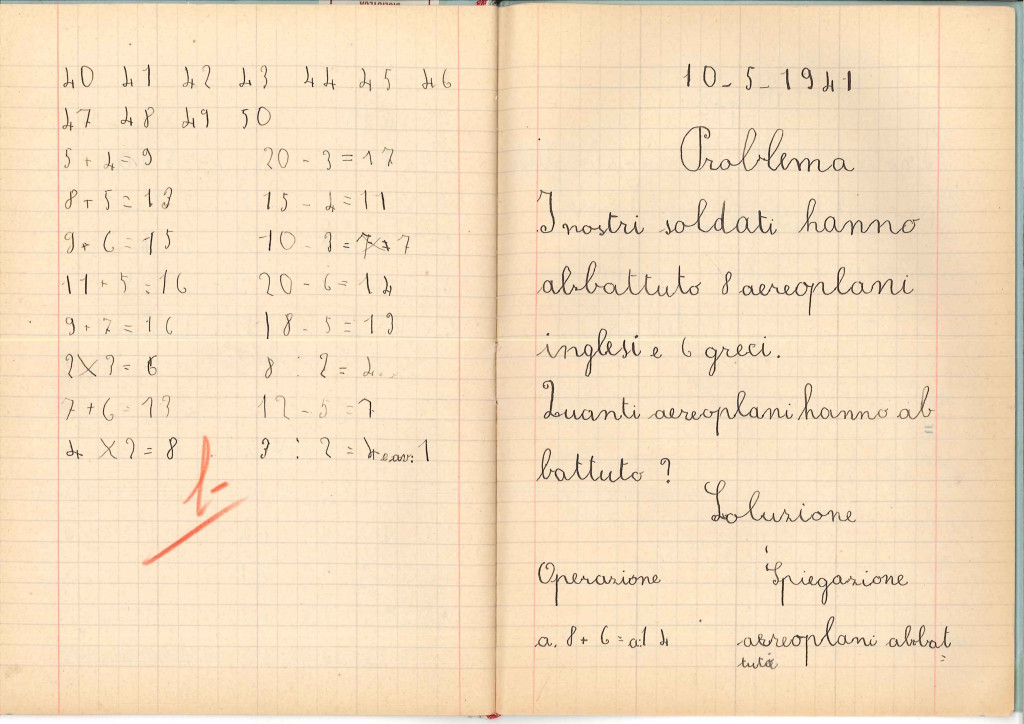 40 41 42 43 44 45 46
47 48 49 50
5 + 4 = 9 20 - 3 = 17
8 + 5 = 13 15 - 4 = 11
9 + 6 = 15 10 - 3 = 7
11 + 5 = 16 20 - 6 = 14
9 + 7 = 16 18 - 5 = 13
2 X 3 = 6 8 : 2 = 4
7 + 6 = 13 12 - 5 = 7
4 X 2 = 8 9 : 2 = 4 e av: 1
10 - 5 - 1941
Problema
I nostri soldati hanno
abbattuto 8 aereoplani
inglesi e 6 greci.
Quanti aereoplani hanno ab
battuto ?
Soluzione
Operazione Spiegazione
a. 8 + 6 = a: 14 aereoplani abbat
tuto